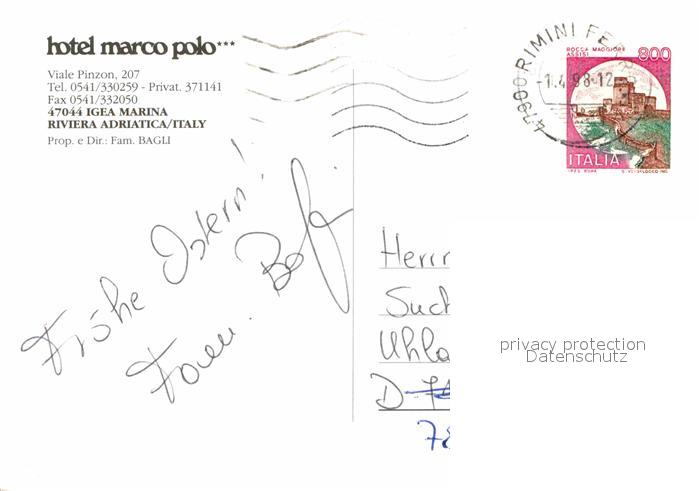 hotel marco polo***
Viale Pinzon, 207
Tel. 0541/330259 - Privat. 371141
Fax 0541/332050
47044 IGEA MARINA
RIVIERA ADRIATICA/ITALY
Prop. e Dir.: Fam. BAGLI
47900 RIMINI FE
-1.4.98-12
ROCCA MAGGIORE
ASSISI
800
ITALIA
I.P.Z.S. ROMA
Fröhe Ostern!
Fam.
Herrn
Such
Uhla
D-
78
privacy protection
Datenschutz